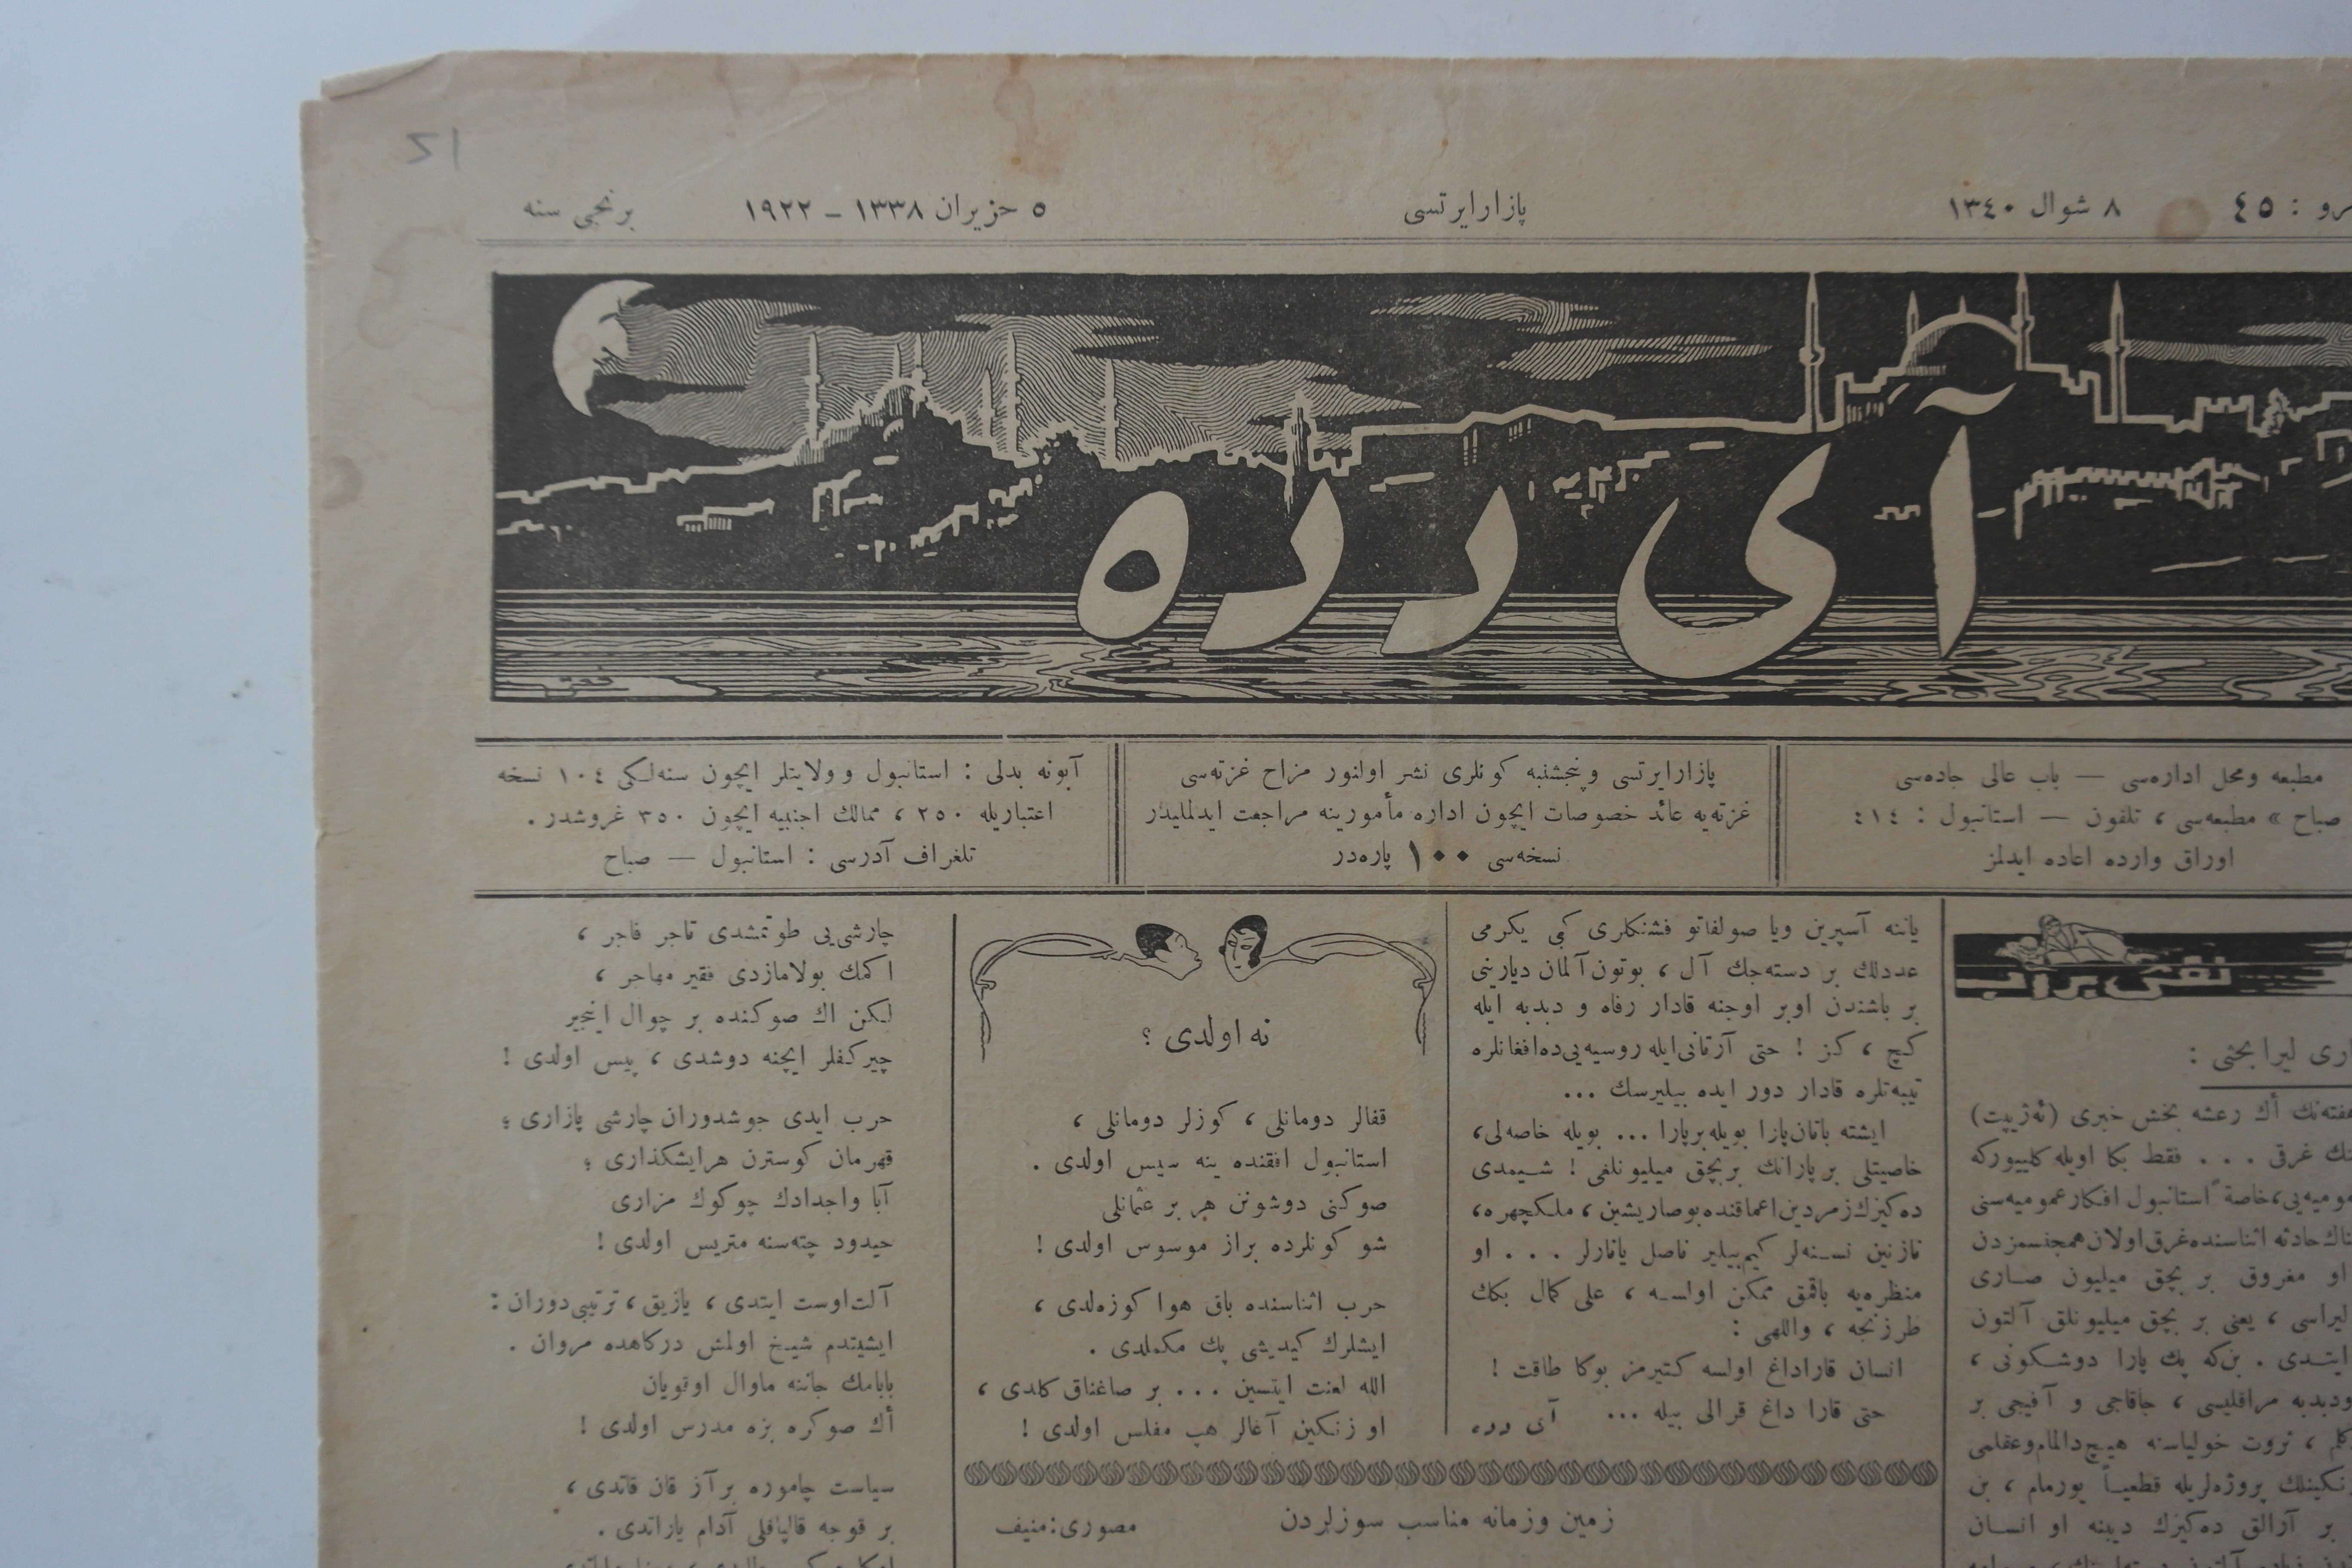 ٨ شوال ١٣٤٠
پازارایرتسی
٥ حزیران ١٣٣٨ – ١٩٢٢
برنجی سنه
آی دده
مطبعه ومحل اداره‌سی — باب عالی جاده‌سی
صباح » مطبعه‌سی ، تلفون — استانبول : ٤١٤
اوراق وارده اعاده ایدلمز
پازارایرتسی وپنجشنبه کونلری نشر اولنور مزاح غزته‌سی
غزته‌یه عائد خصوصات ایچون اداره مأمورینه مراجعت ایدلملیدر
نسخه‌سی ١٠٠ پاره‌در
آبونه بدلی : استانبول وولایتلر ایچون سنه‌لکی ١٠٤ نسخه
اعتباریله ٢٥٠ ، ممالك اجنبیه ایچون ٣٥٠ غروشدر .
تلغراف آدرسی : استانبول — صباح
لیرا بحثی :
هفته‌نك أك رعشه بخش خبری (ئه‌ژیپت)
غرقی . . . فقط بكا اویله کلییورکه
خاصةً استانبول افکار عمومیه‌سنی
حادثه اثناسنده غرق اولان همجنسمزدن
او مغروق بر بچق میلیون صاری
لیراسی ، یعنی بر بچق میلیونلق آلتون
ایتدی . بن‌که پك پارا دوشکونی ،
ودبدبه مراقلیسی ، چاقاجی و آفیجی بر
ثروت خولیاسنه هیچ دالمام وعقلمی
پروژه‌لریله قطعیاً یورمام ، بن
بر آرالق ده‌کیزك دیبنه او انسان
یاننه آسپرین ویا صولفاتو فشنکلری کبی یکرمی
عددلك بر دسته‌جك آل ، بوتون آلمان دیارینی
بر باشندن اوبر اوجنه قادار رفاه و دبدبه ایله
کچ ، کز ! حتی آرتانی‌ایله روسیه‌یی‌ده‌افغانلره
تیبه‌تلره قادار دور ایده بیلیرسك ...
ایشته باتان‌پارا بویله‌برپارا ... بویله خاصه‌لی،
خاصیتلی بر پارانك بر بچق میلیونلغی ! شیمدی
ده‌کیزك‌زمردین‌اعماقنده‌بوصاریشین ، ملکچهره،
نازنین نسنه‌لر کیم‌بیلیر ناصل یانارلر . . . او
منظره‌یه باقمق ممکن اولسه ، علی کمال بكك
طرزنجه ، واللهی :
انسان قاراداغ اولسه کتیرمز بوکا طاقت !
حتی قارا داغ قرالی بیله ...
آی دده
نه اولدی ؟
قفالر دومانلی ، کوزلر دومانلی ،
استانبول افقنده ینه سیس اولدی .
صوکنی دوشونن هر بر عثمانلی
شو کونلرده براز موسوس اولدی !
حرب اثناسنده باق هوا کوزه‌لدی ،
ایشلرك کیدیشی پك مکملدی .
الله لعنت ایتسین ... بر صاغناق کلدی ،
او زنکین آغالر هپ مفلس اولدی !
چارشی‌یی طوتمشدی تاجر فاجر ،
اکمك بولامازدی فقیر مهاجر ،
لکن اك صوکنده بر چوال اینجیر
چیرکفلر ایچنه دوشدی ، پیس اولدی !
حرب ایدی جوشدوران چارشی پازاری ؛
قهرمان کوسترن هرایشکذاری ؛
آبا واجدادك چوکوك مزاری
حیدود چته‌سنه متریس اولدی !
آلت‌اوست ایتدی ، یازیق ، ترتیبی‌دوران :
ایشیتدم شیخ اولمش درکاهده مروان .
بابامك جاننه ماوال اوقویان
أك صوکره بزه مدرس اولدی !
سیاست چاموره بر آز قان قاتدی ،
بر قوجه قالپاقلی آدام یاراتدی .
زمین وزمانه مناسب سوزلردن
مصوری : منیف